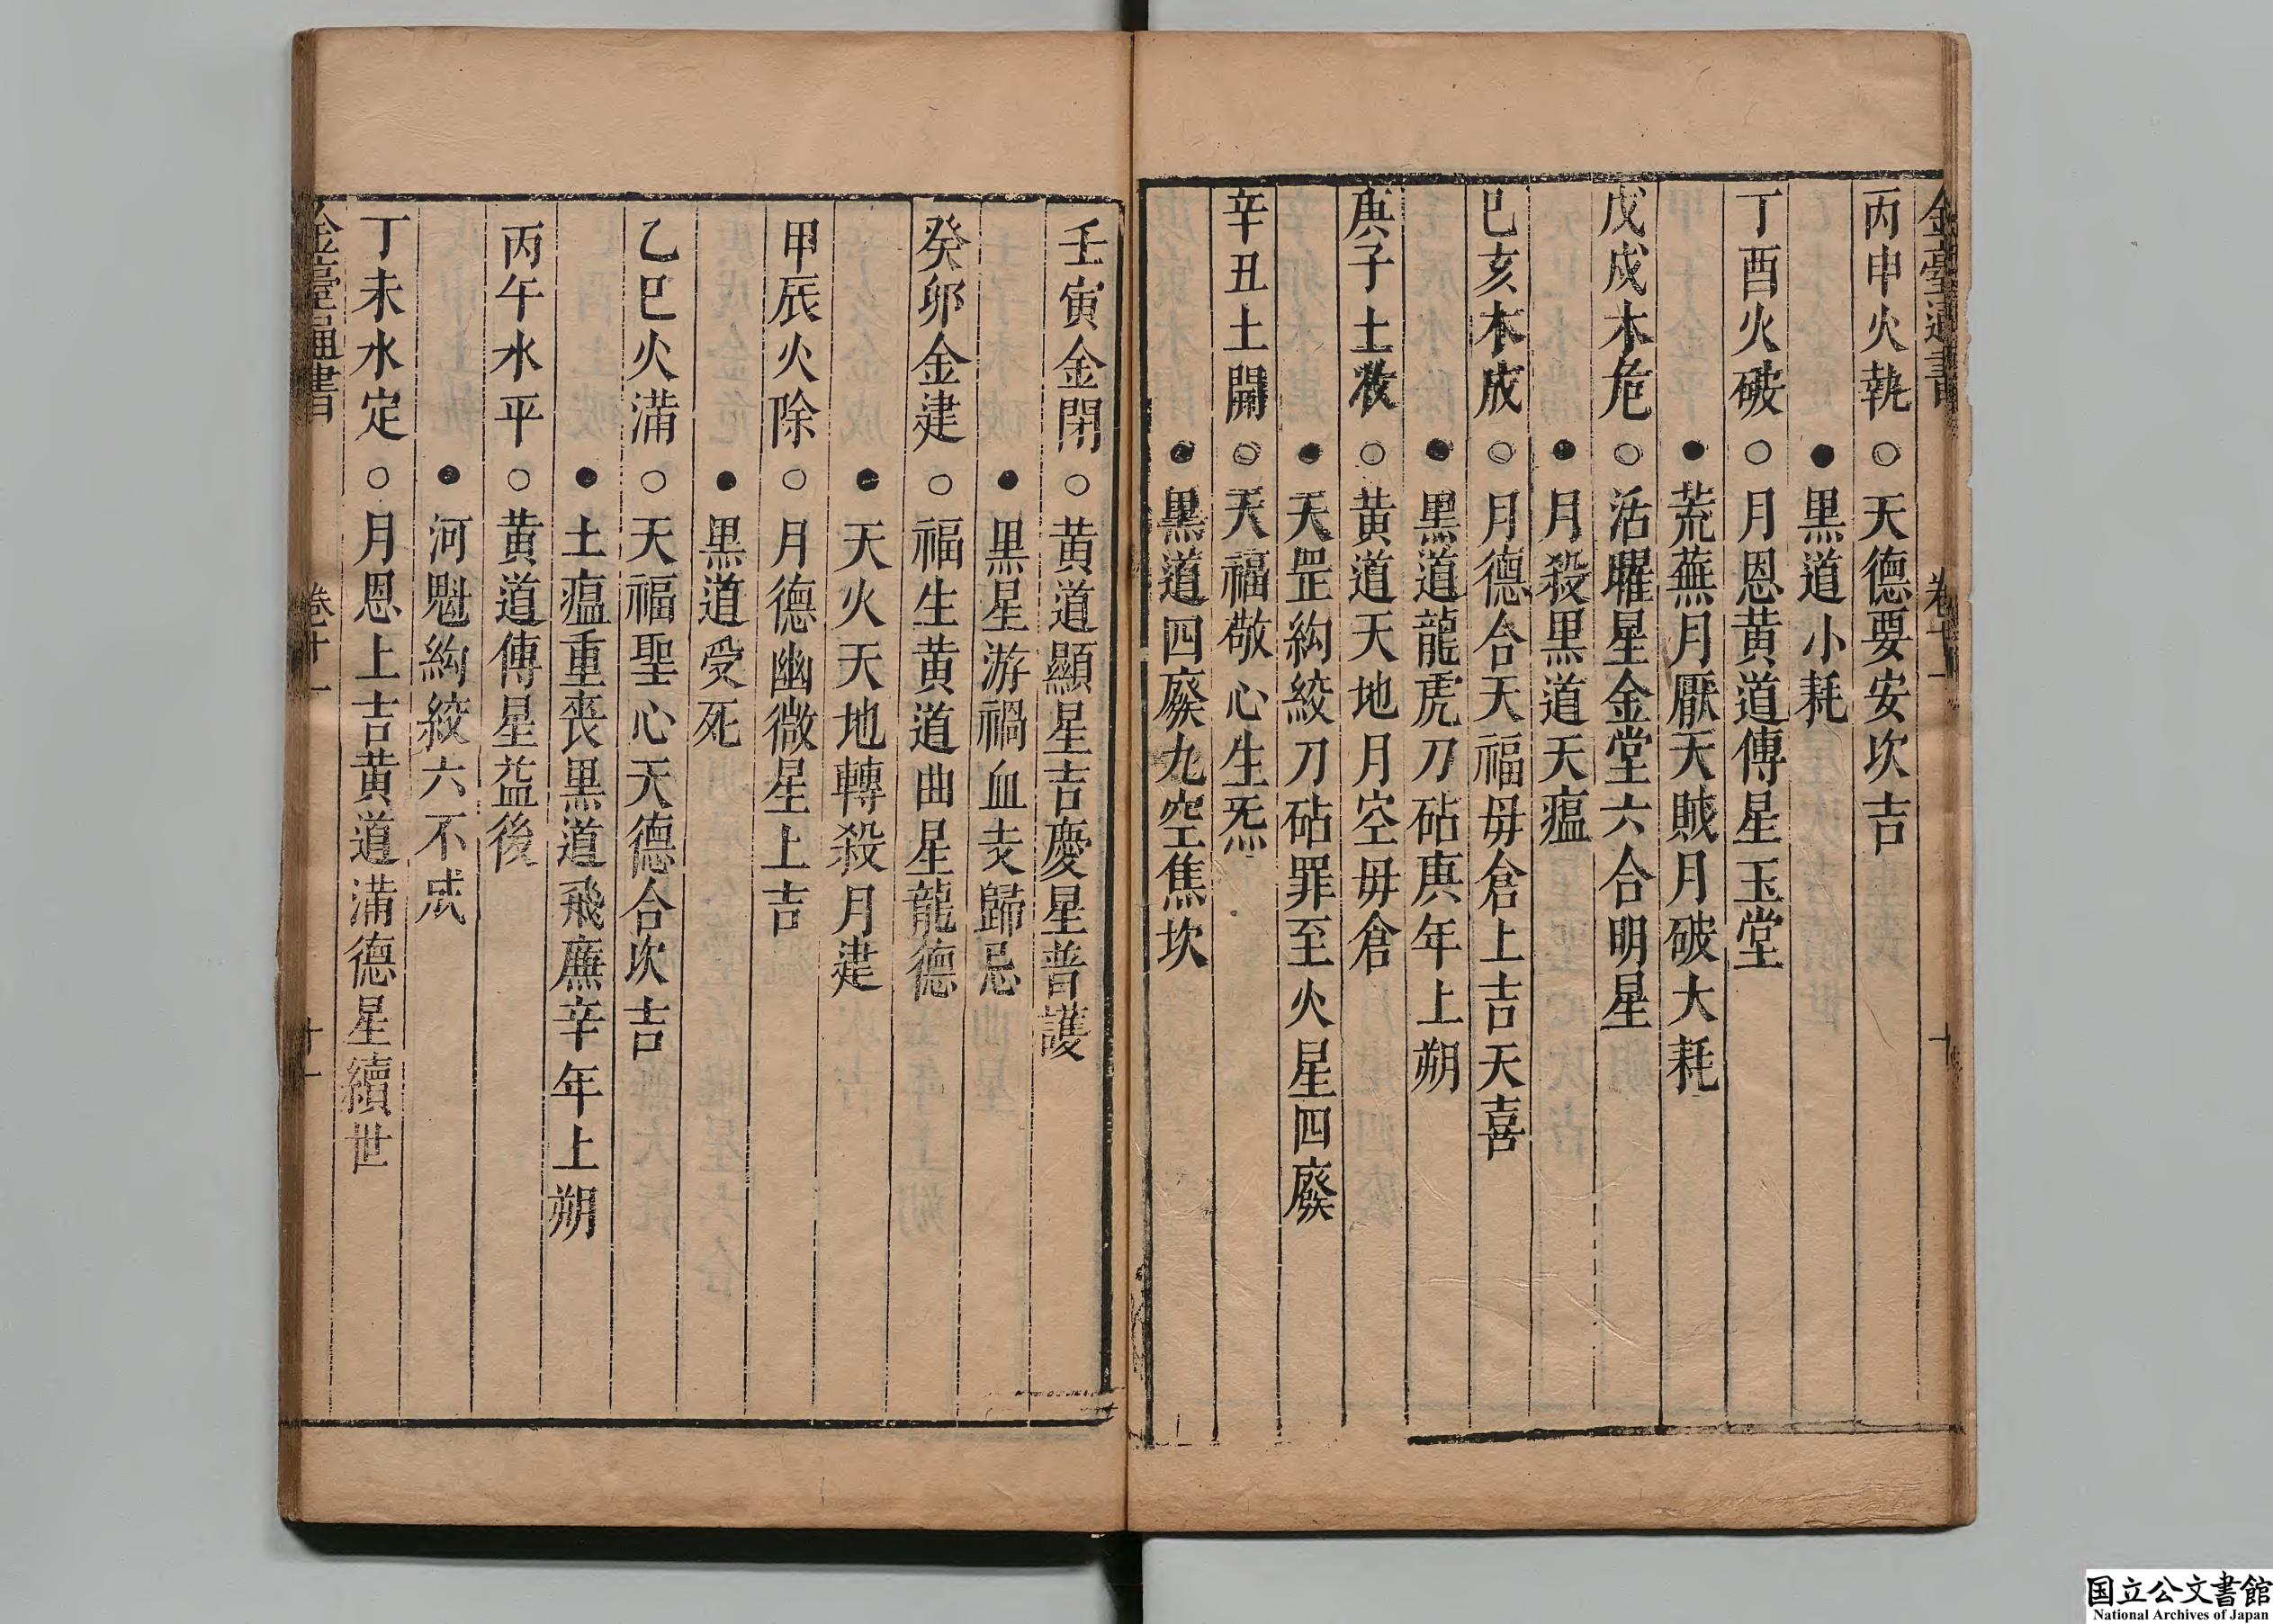 金臺通書 卷十一 十
丙申火執○天德要安坎吉
●黒道小耗
丁酉火破○月恩黄道傳星玉堂
●荒蕪月厭天賊月破大耗
戊戍木危○活曜星金堂六合明星
●月殺黒道天瘟
巳亥木成○月德合天福毋倉上吉天喜
●黒道龍虎刀砧庚年上朔
庚子土收○黄道天地月空毋倉
●天罡紏絞刀砧罪至火星四廢
辛丑土開○天福敬心生炁
●黒道四廢九空焦坎
壬寅金閉○黄道顯星吉慶星普護
●黒星游禍血支歸忌
癸卯金建○福生黄道曲星龍德
●天火天地轉殺月建
甲辰火除○月德幽微星上吉
●黒道受死
乙巳火滿○天福聖心天德合坎吉
●土瘟重喪黒道飛廉辛年上朔
丙午水平○黄道傳星益後
●河魁紏絞六不成
丁未水定○月恩上吉黄道滿德星續世
金臺通書 卷十一 十一
国立公文書館
National Archives of Japan